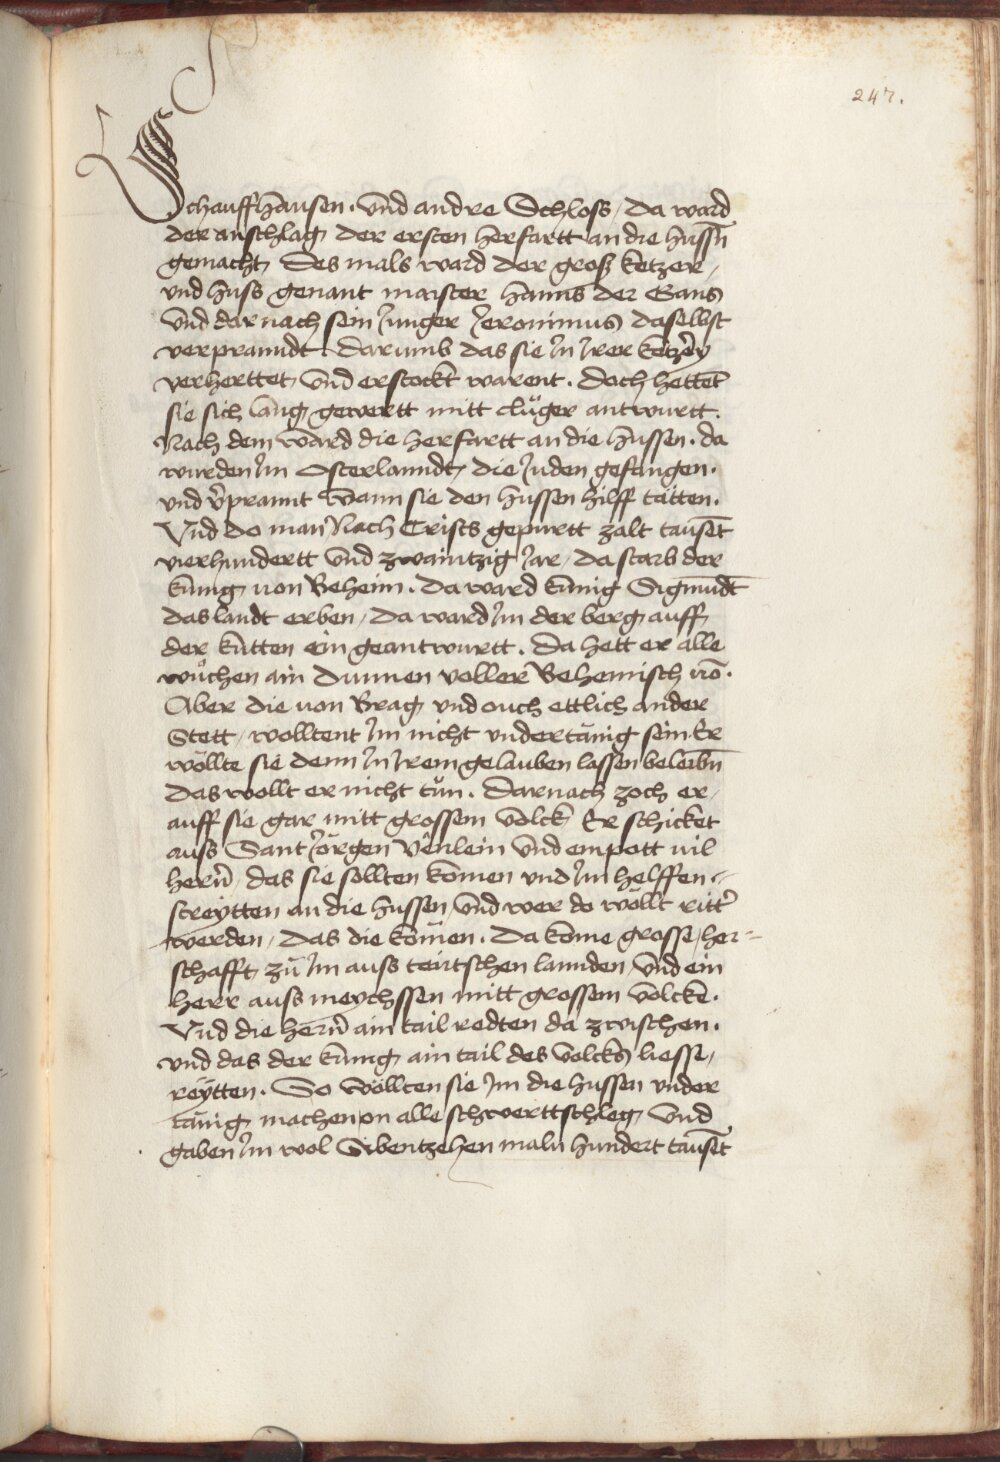 247.
Schauffhausen. vnd andre Schloss / da ward
der anschlag der ersten herfartt an die hussn̄
gemacht Des mals ward der groß ketzer /
vnd huss genant maister hanns der Gans
vnd dar nach sein Junger Jeronimus daselbst
verpranndt. darumb das sie Jn Jrer ketzery
verherttet vnd erstockt warent. doch hettet̄
sie sich lang gewertt mitt cluͦger antwurtt.
Nach dem ward die herfartt an die hussen. da
wurden Jm Osterlanndt die Juden gefangen.
vnd v̄prannt Wann sie den hussen hilff tätten.
Vnd do man Nach Crists gepurtt zalt tausēt
vierhundertt vnd zwaintzig Jar / da starb der
kunig von Beheim. da ward kunig Sigmūdt
das landt erben / da ward Jm der berg auff
der kutten ein geantwurtt. Da hett er alle
wuͦchen ain dunnen voller Behemisch no᷄.
Aber die von Brag vnd ouch ettlich ander
Stett / wolltent Jm nicht vndertänig sein. Er
wöllte sie denn Jn Jrem gelauben lassen beleibn̄
das wollt er nicht tuͦn. Darnach zoch er /
auff sie gar mitt grossem volck Er schicket
auss Sant Jörgen Vēnlein vnd empott vil
hern̄ / das sie sollten komen vnd Jm helffen
streytten an die hussen / vnd wer do wöllt ritt᷑
werden / das die kömen. Da kome grosse her=
schafft zuͦ Jm auss teutschen lannden / vnd ein
herr auss meychssen mitt grossem volcke.
Vnd die hern̄ ain tail redten da zwischen.
vnd das der kunig ain tail des volcks liesse /
reytten. So wöllten sie Jm die hussen vnder
tänig machen on alle schwerttschleg vnd
gaben Jm wol Sibentzehen maln hundert tausēt